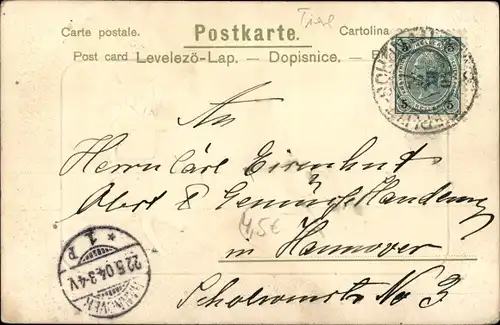 Tirol
Carte postale. Postkarte. Cartolina
Post card Levelező-Lap. — Dopisnice. —
5 5
An
Herrn Carl Eisenhut
Obst & Gemüse Handlung
4,5€
in Hannover
1 P
22.5.04.3-4 V.
HANNOVER
No 3